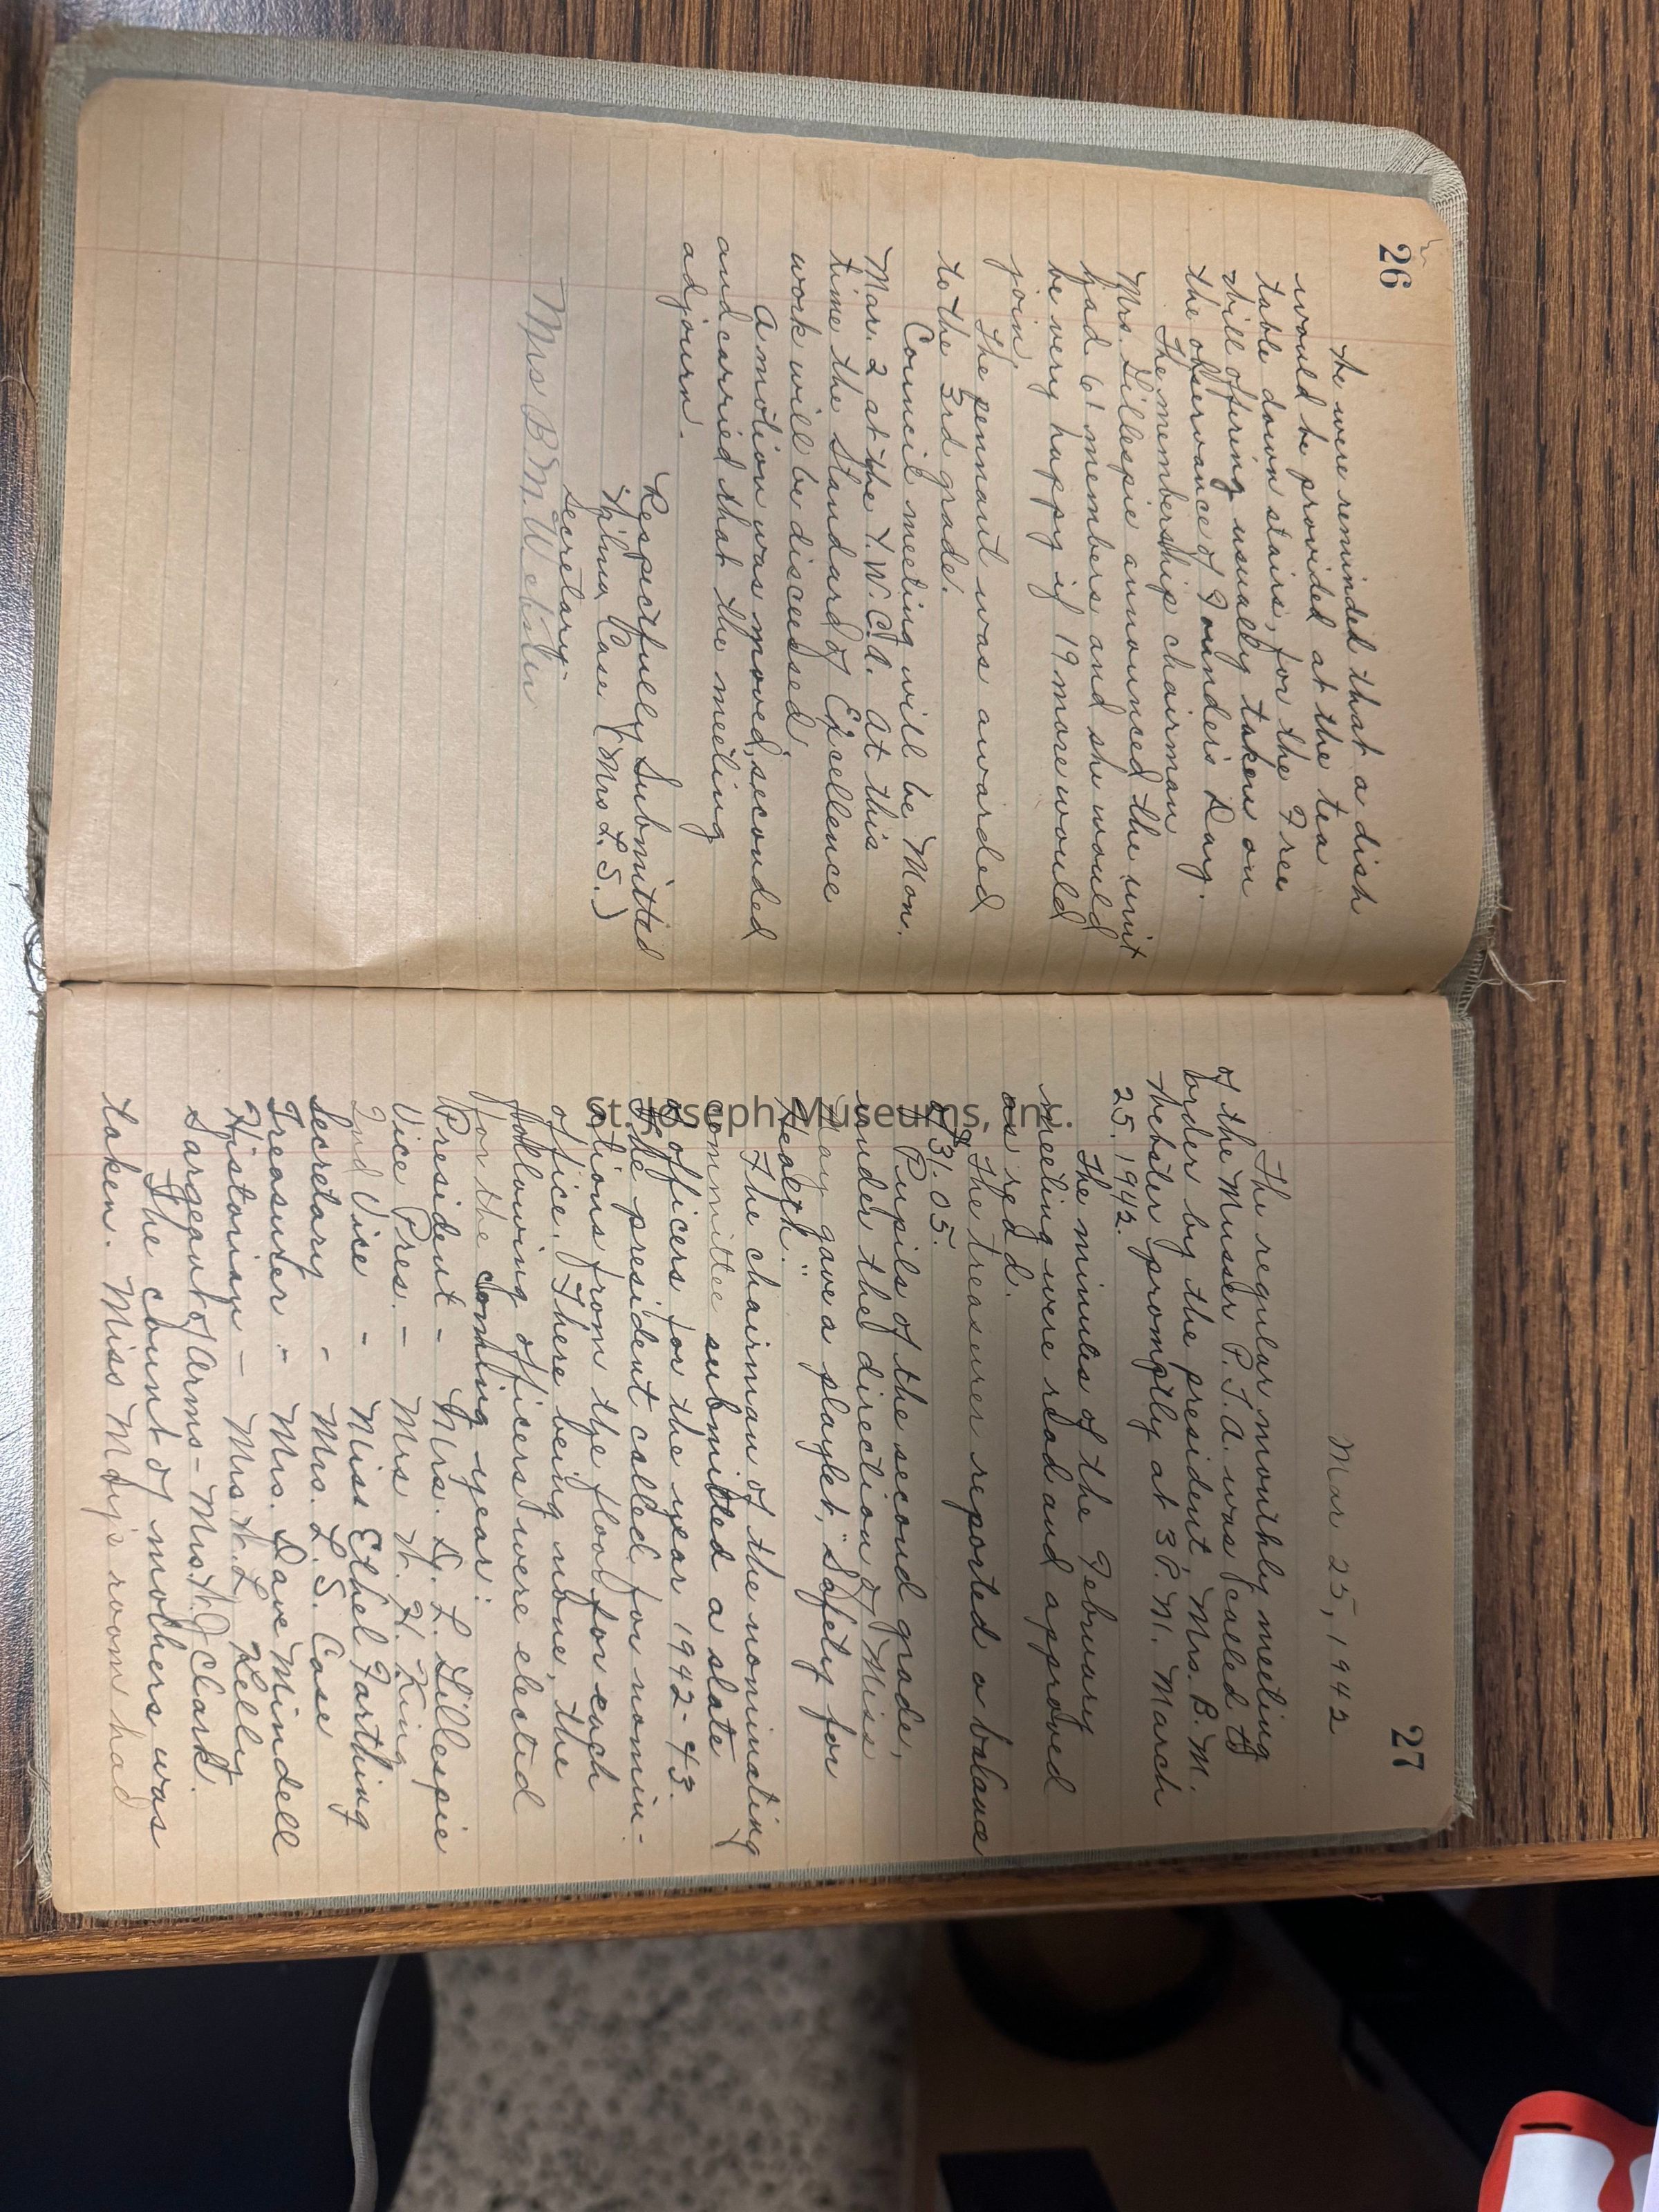 26
We were reminded that a dish
would be provided at the tea
table down stairs, for the Free
Will offering usually taken on
the observance of Founder's Day.
The membership chairman
Mrs. Gillespie announced the unit
had 61 members and she would
be very happy if 19 more would
join.
The pennant was awarded
to the 3rd grade.
Council meeting will be Mon.
Mar. 2 at the Y.W.C.A. At this
time the Standard of Excellence
work will be discussed.
A motion was moved, seconded
and carried that the meeting
adjourn.
Respectfully Submitted
Wilma Case (Mrs L. S.)
Secretary
Mrs B M. Webster
27
Mar 25, 1942
The regular monthly meeting
of the Musser P.T.A. was called to
order by the president, Mrs. B. M.
Webster promptly at 3 P. M. March
25, 1942.
The minutes of the February
meeting were read and approved
as read.
The treasurer reported a balance
of $31.05.
Pupils of the second grade,
under the direction of Miss
May gave a playlet, "Safety for
Health."
The chairman of the nominating
committee submitted a slate
of officers for the year 1942-43.
The president called for nomin-
ations from the floor for each
office. There being none, the
following officers were elected
for the coming year:
President - Mrs. D. L. Gillespie
Vice Pres. - Mrs W. H. King
2nd Vice - Miss Ethel Farthing
Secretary - Mrs. L. S. Case
Treasurer - Mrs. Dave Mindell
Historian - Mrs. W. L. Kelly
Sargeant of Arms - Mrs. W. J. Clark.
The count of mothers was
taken. Miss May's room had
St. Joseph Museums, Inc.